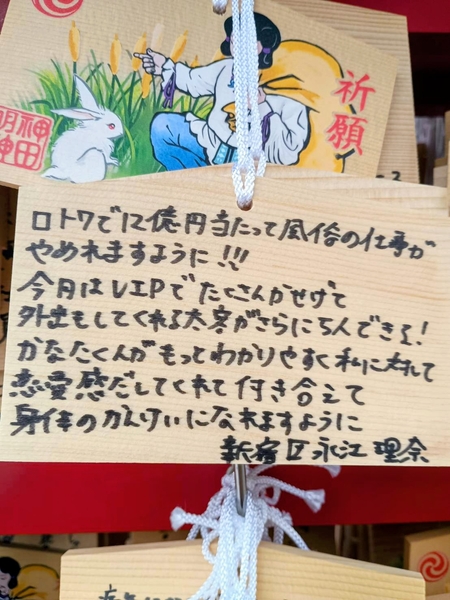 祈願
神田
明神
ロト7で12億円当たって風俗の仕事が
やめれますように!!!
今月はVIPでたくさんかせげて
外出もしてくれる太客がさらに5人できる!
かなたくんがもってわかりやすく私に対して
恋愛感だしてくれて付き合えて
身体のかんけいになれますように
新宿区 永江 理奈